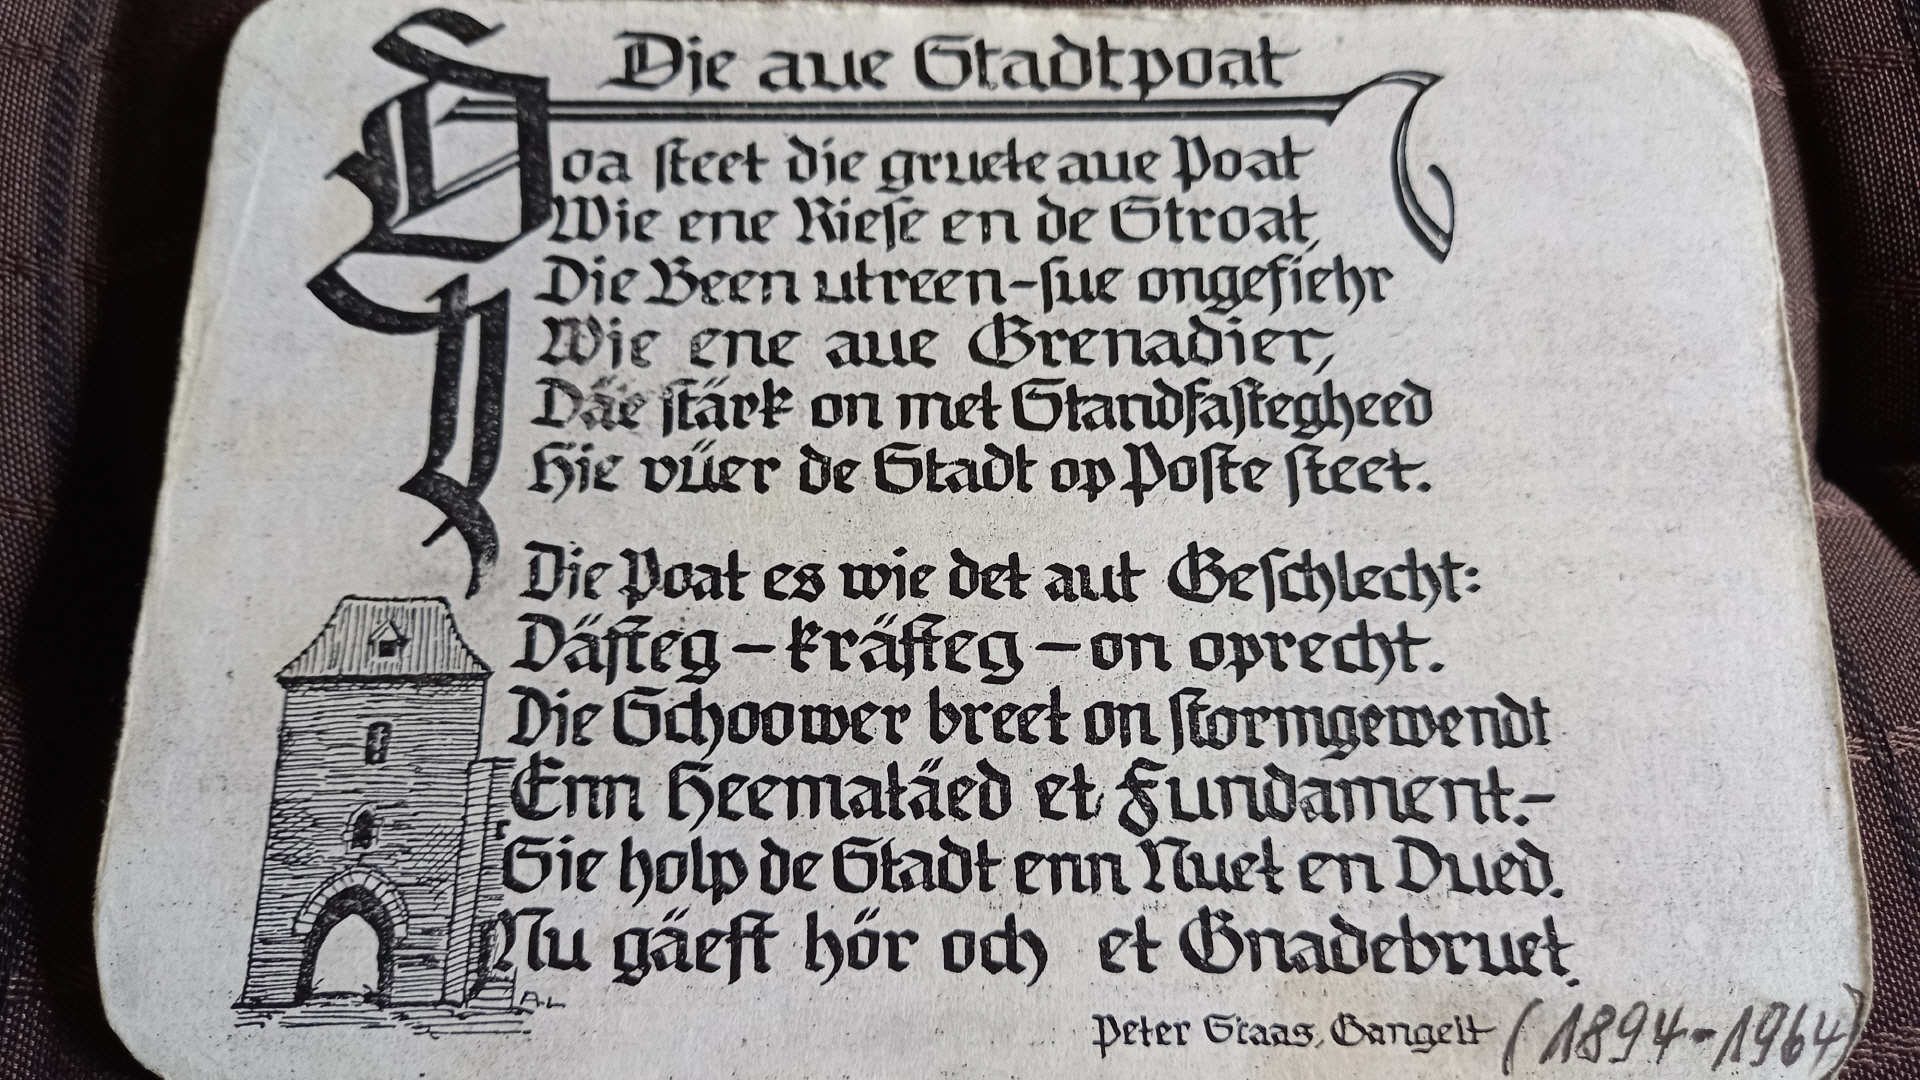 Die aue Stadtpoat
Doa steet die gruete aue Poat
Wie ene Riese en de Stroat,
Die Been utreen-sue ongefiehr
Wie ene aue Grenadier,
Däe stärk on met Standfastegheed
Hie vüer de Stadt op Poste steet.
Die Poat es wie det aut Geschlecht:
Däfteg - kräfteg - on oprecht.
Die Schoower breet on stormgewendt
Enn Heematäed et Fundament.-
Sie holp de Stadt enn Nuet en Dued.
Nu gäeft hör och et Gnadebruet.
A.L
Peter Staas, Gangelt (1894-1964)